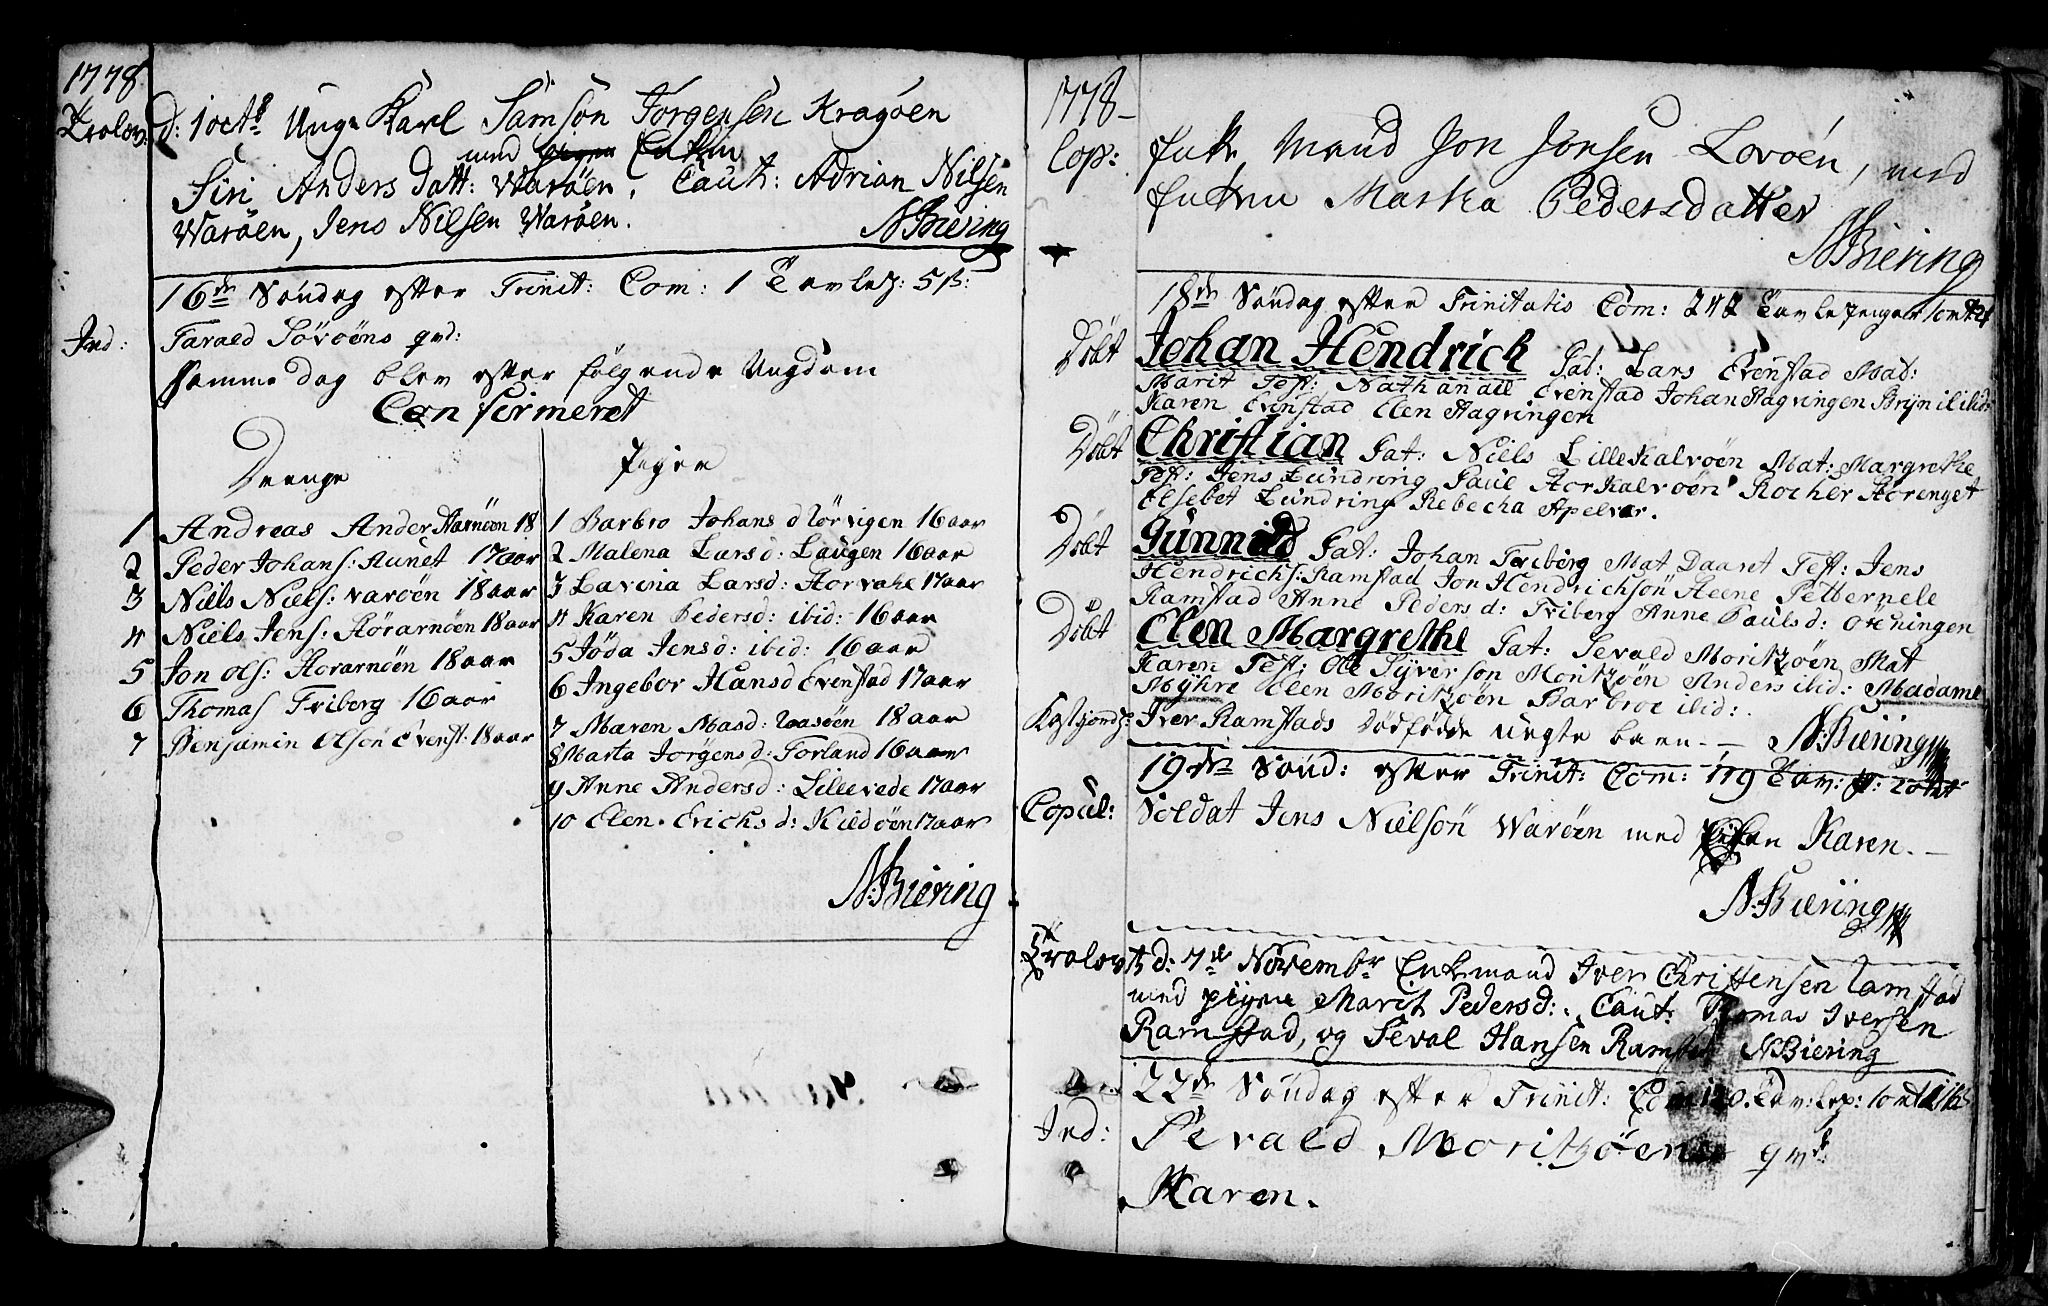 1778
Trolov: d: 1 octb: Unge Karl Samson Jörgensen Kragöen
med pigen Enken
Siri Anders Datt: Waröen, Caut: Adrian Nilsen
Waröen, Jens Nilsen Waröen.
NBiering
16de Söndag efter Trinit: Com: 1 Tavlep: 5 ß:
Ind: Tarald Sövöens qvd:
Samme dag blev efter følgende Ungdom
Confirmeret
Drenge
1 Andreas Ander Aarnöen 18
2 Peder Johans: Aunet 17 aar
3 Niels Niels: Varöen 18 aar
4 Niels Jens: Horarnöen 18 aar
5 Jon Ols: Horarnöen 18 aar
6 Thomas Friberg 16 aar
7 Benjamin Olsön Evenst: 18 aar
Piger
1 Barbro Johans d Lörvigen 16 aar
2 Malena Larsd: Laugen 16 aar
3 Lavina Larsd: Horvahe 17 aar
4 Karen Pedersd: ibid: 16 aar
5 Jöda Jensd: ibid: 16 aar
6 Ingebor Hansd Evenstad 17 aar
7 Maren Masd: Vaasöen 18 aar
8 Marta Jörgensd: Torland 16 aar
9 Anne Andersd: Lillevade 17 aar
10 Elen Erichsd: Kildöen 17 aar
N:Biering
1778
Cop: Enke Mand Jon Jonsen Lovöen, med
Enken Marta Pedersdatter
NBiering
18de Söndag efter Trinitatis Com: 242 Tavlepenger 1 ort 21
Döbt Johan Hendrich Fat: Lars Evenstad Mat:
Marit Test: Nathanael Evenstad Johan Hagringen Brijnil ibid:
Karen Evenstad Elen Hagringen
Döbt Christian Fat: Niels Lille Kalvöen Mat: Margrethe
Test: Jens Lündring Paul Hor Kalvöen Rocher Horenget
Elsebet Lündring Rebecha Apelvær.
Döbt Günnild Fat: Johan Friberg Mat Daaret Test: Jens
Hendrichs: Ramstad Jon Hendrichsön Heene Petternele
Ramstad Anne Pedersd: Friberg Anne Paulsd: Öeningen
Döbt Elen Margrethe Fat: Sevald Moritzöen Mat
Karen Test: Ole Syverson Moritzöen Anders ibid: Madame
Myhre Elen Moritzöen Barbroe ibid:
Kastjord: Iver Ramstads Dödfödde uegte barn. – N:Biering
19de Sönd: efter Trinit: Com: 119 Tav: p: 2 ort
Copul: Soldat Jens Nielsön Waröen med Karen. –
N:Biering
Trolov d: 7de Novembr Enkemand Iver Christensen Ramstad
med pigen Marit Pedersd:. Caut: Thomas Iversen
Ramstad, og Seval Hansen Ramstad NBiering
22de Söndag efter Trinit: Com: 120. Tav: lep: 1 ort
Ind: Sevald Moritzöens qvd:
Karen.